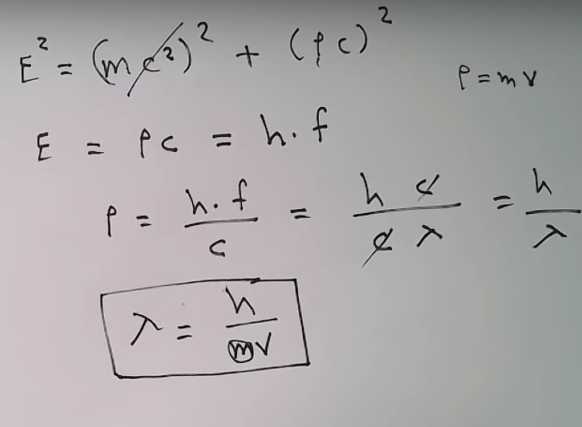 E² = (mc²)² + (pc)²
p = mv
E = pc = h·f
p = h·f / c = h c / c λ = h / λ
λ = h / mv